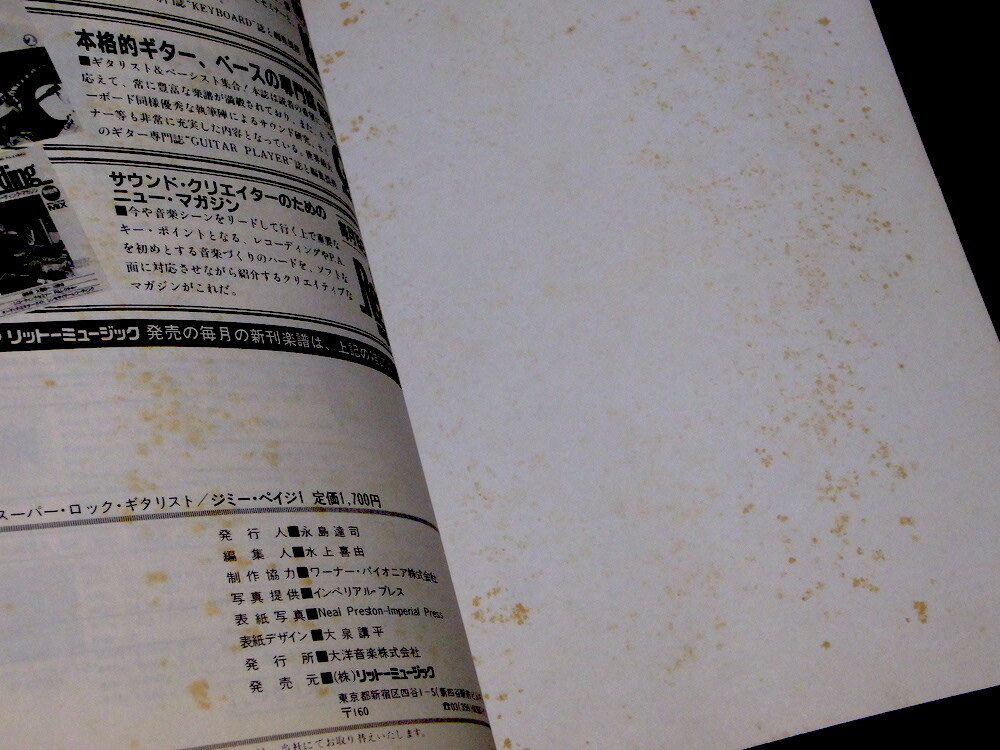 誌“KEYBOARD”誌と編集提携
②
本格的ギター、ベースの専門誌
■ギタリスト&ベーシスト集合!本誌は読者の
応えて、常に豊富な楽譜が満載されており、また、
ーボード同様優秀な執筆陣によるサウンド研究、
ナー等も非常に充実した内容となっている。
のギター専門誌“GUITAR PLAYER”誌と編集提携
ding
MIX
サウンド・クリエイターのための
ニュー・マガジン
■今や音楽シーンをリードして行く上で重要な
キー・ポイントとなる、レコーディングやP.A.
を初めとする音楽づくりのハードを、ソフトな
面に対応させながら紹介するクリエイティブな
マガジンがこれだ。
リットーミュージック 発売の毎月の新刊楽譜は、上記の
スーパー・ロック・ギタリスト/ジミー・ペイジI 定価1,700円
発行人■永島達司
編集人■水上喜由
制作協力■ワーナー・パイオニア株式会社
写真提供■インペリアル・プレス
表紙写真■Neal Preston-Imperial Press
表紙デザイン■大泉講平
発行所■大洋音楽株式会社
発売元■(株)リットーミュージック
東京都新宿区四谷1-5(新四谷駅前ビル
〒160 ☎03(356
当社にてお取り替えいたします。